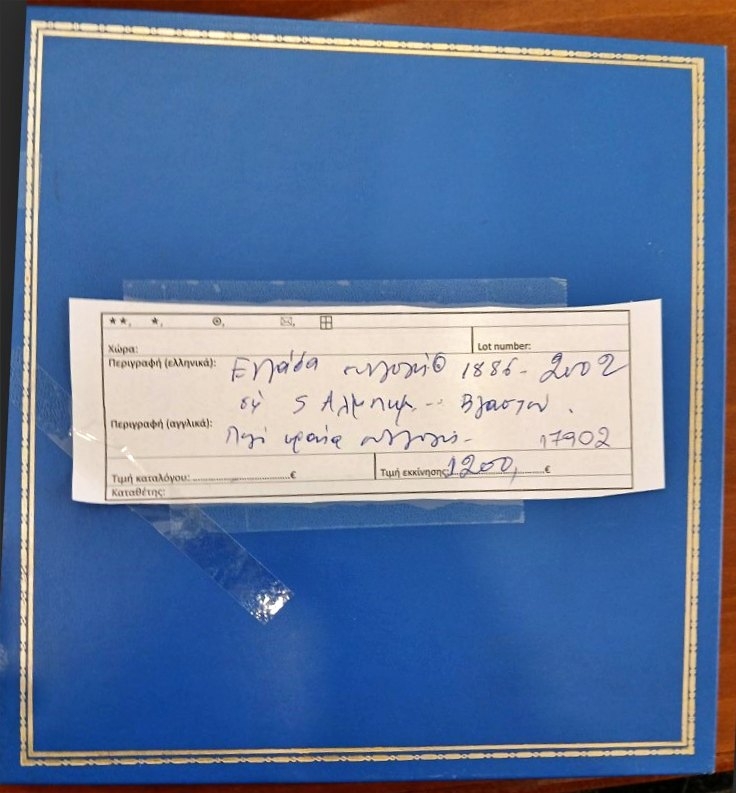 **, *,
Χώρα: Lot number:
Περιγραφή (ελληνικά): Ελλάδα συλλογή 1886-2002
σε 5 Άλμπουμ -- Βλαστού.
Περιγραφή (αγγλικά):
Πολύ ωραία συλλογή- 17902
Τιμή καταλόγου: ..................................€ Τιμή εκκίνησης: 1200, ..........€
Καταθέτης: